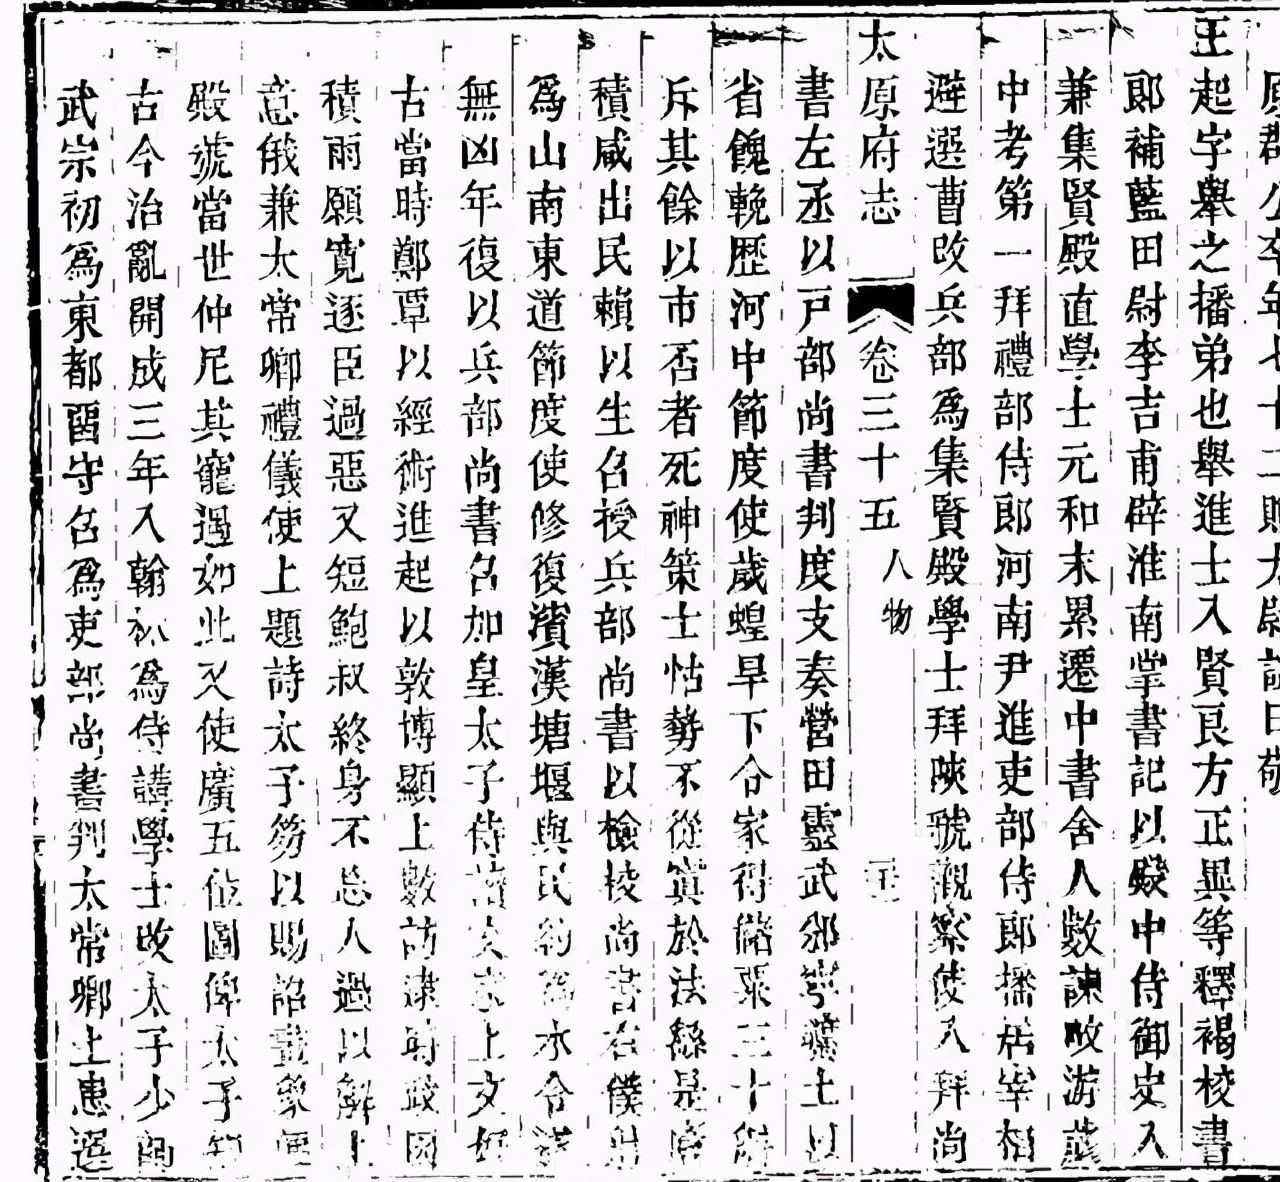 原郡公卒年七十二贈太尉諡曰敬
王起字舉之播弟也舉進士入賢良方正異等釋褐校書
郎補藍田尉李吉甫辟淮南掌書記以殿中侍御史入
兼集賢殿直學士元和末累遷中書舍人數諫畋游歲
中考第一拜禮部侍郎河南尹進吏部侍郎播居宰相
避選曹改兵部為集賢殿學士拜陝虢觀察使入拜尚
太原府志 卷三十五 人物
書左丞以戸部尚書判度支奏營田靈武邠寧曠土以
省餽輓歷河中節度使歲蝗旱下令家得儲粟三十斛
斥其餘以市否者死神策士怙勢不從寘於法繇是廥
積咸出民賴以生召授兵部尚書以檢校尚書右僕射
為山南東道節度使修復濱漢塘堰與民約為水令遂
無凶年復以兵部尚書召加皇太子侍讀文宗上文好
古當時鄭覃以經術進起以敦博顯上數訪逮時政因
積雨願寬逐臣過惡又短鮑叔終身不忘人過以解上
意俄兼太常卿禮儀使上題詩太子笏以賜詔畫象便
殿號當世仲尼其寵遇如此又使廣五位圖俾太子知
古今治亂開成三年入翰林為侍講學士改太子少師
武宗初為東都留守召為吏部尚書判太常卿上患選